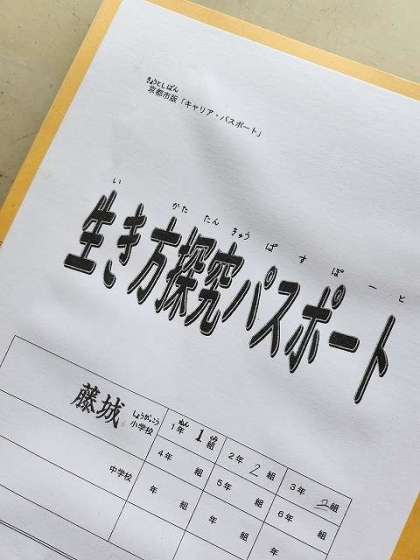 きょうとしばん
京都市版「キャリア・パスポート」
い かた たん きゅう ぱ す ぽ ー と
生き方探究パスポート
藤城 小学校 しょうがっこう
1年 ねん 1 組 くみ
2年 2 組
3年 2 組
4年 組
5年 組
6年 組
中学校
年 組
年 組
年 組